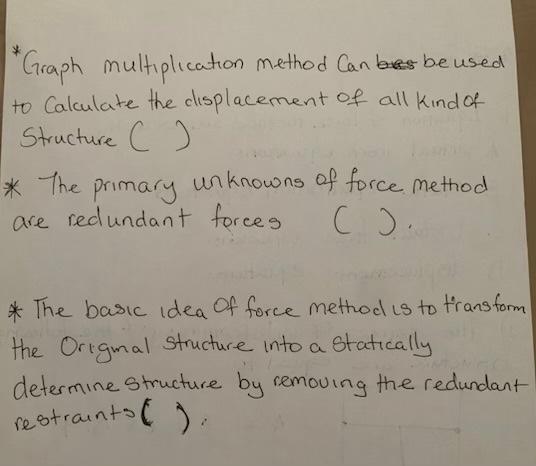 *Graph multiplication method Can be used
to Calculate the displacement of all kind of
Structure ( )
* The primary unknowns of force method
are redundant forces ( ).
* The basic idea Of force method is to transform
the Original Structure into a Statically
determine Structure by removing the redundant
restraints ( ).